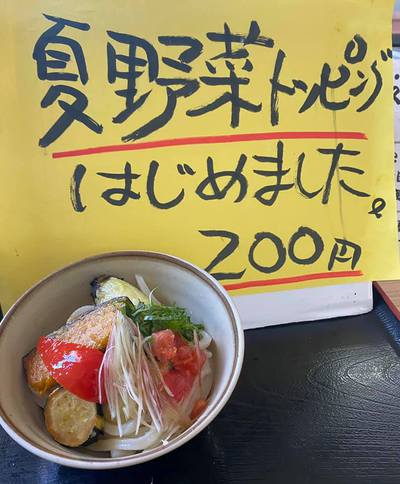 夏野菜トッピング
はじめました。
200円